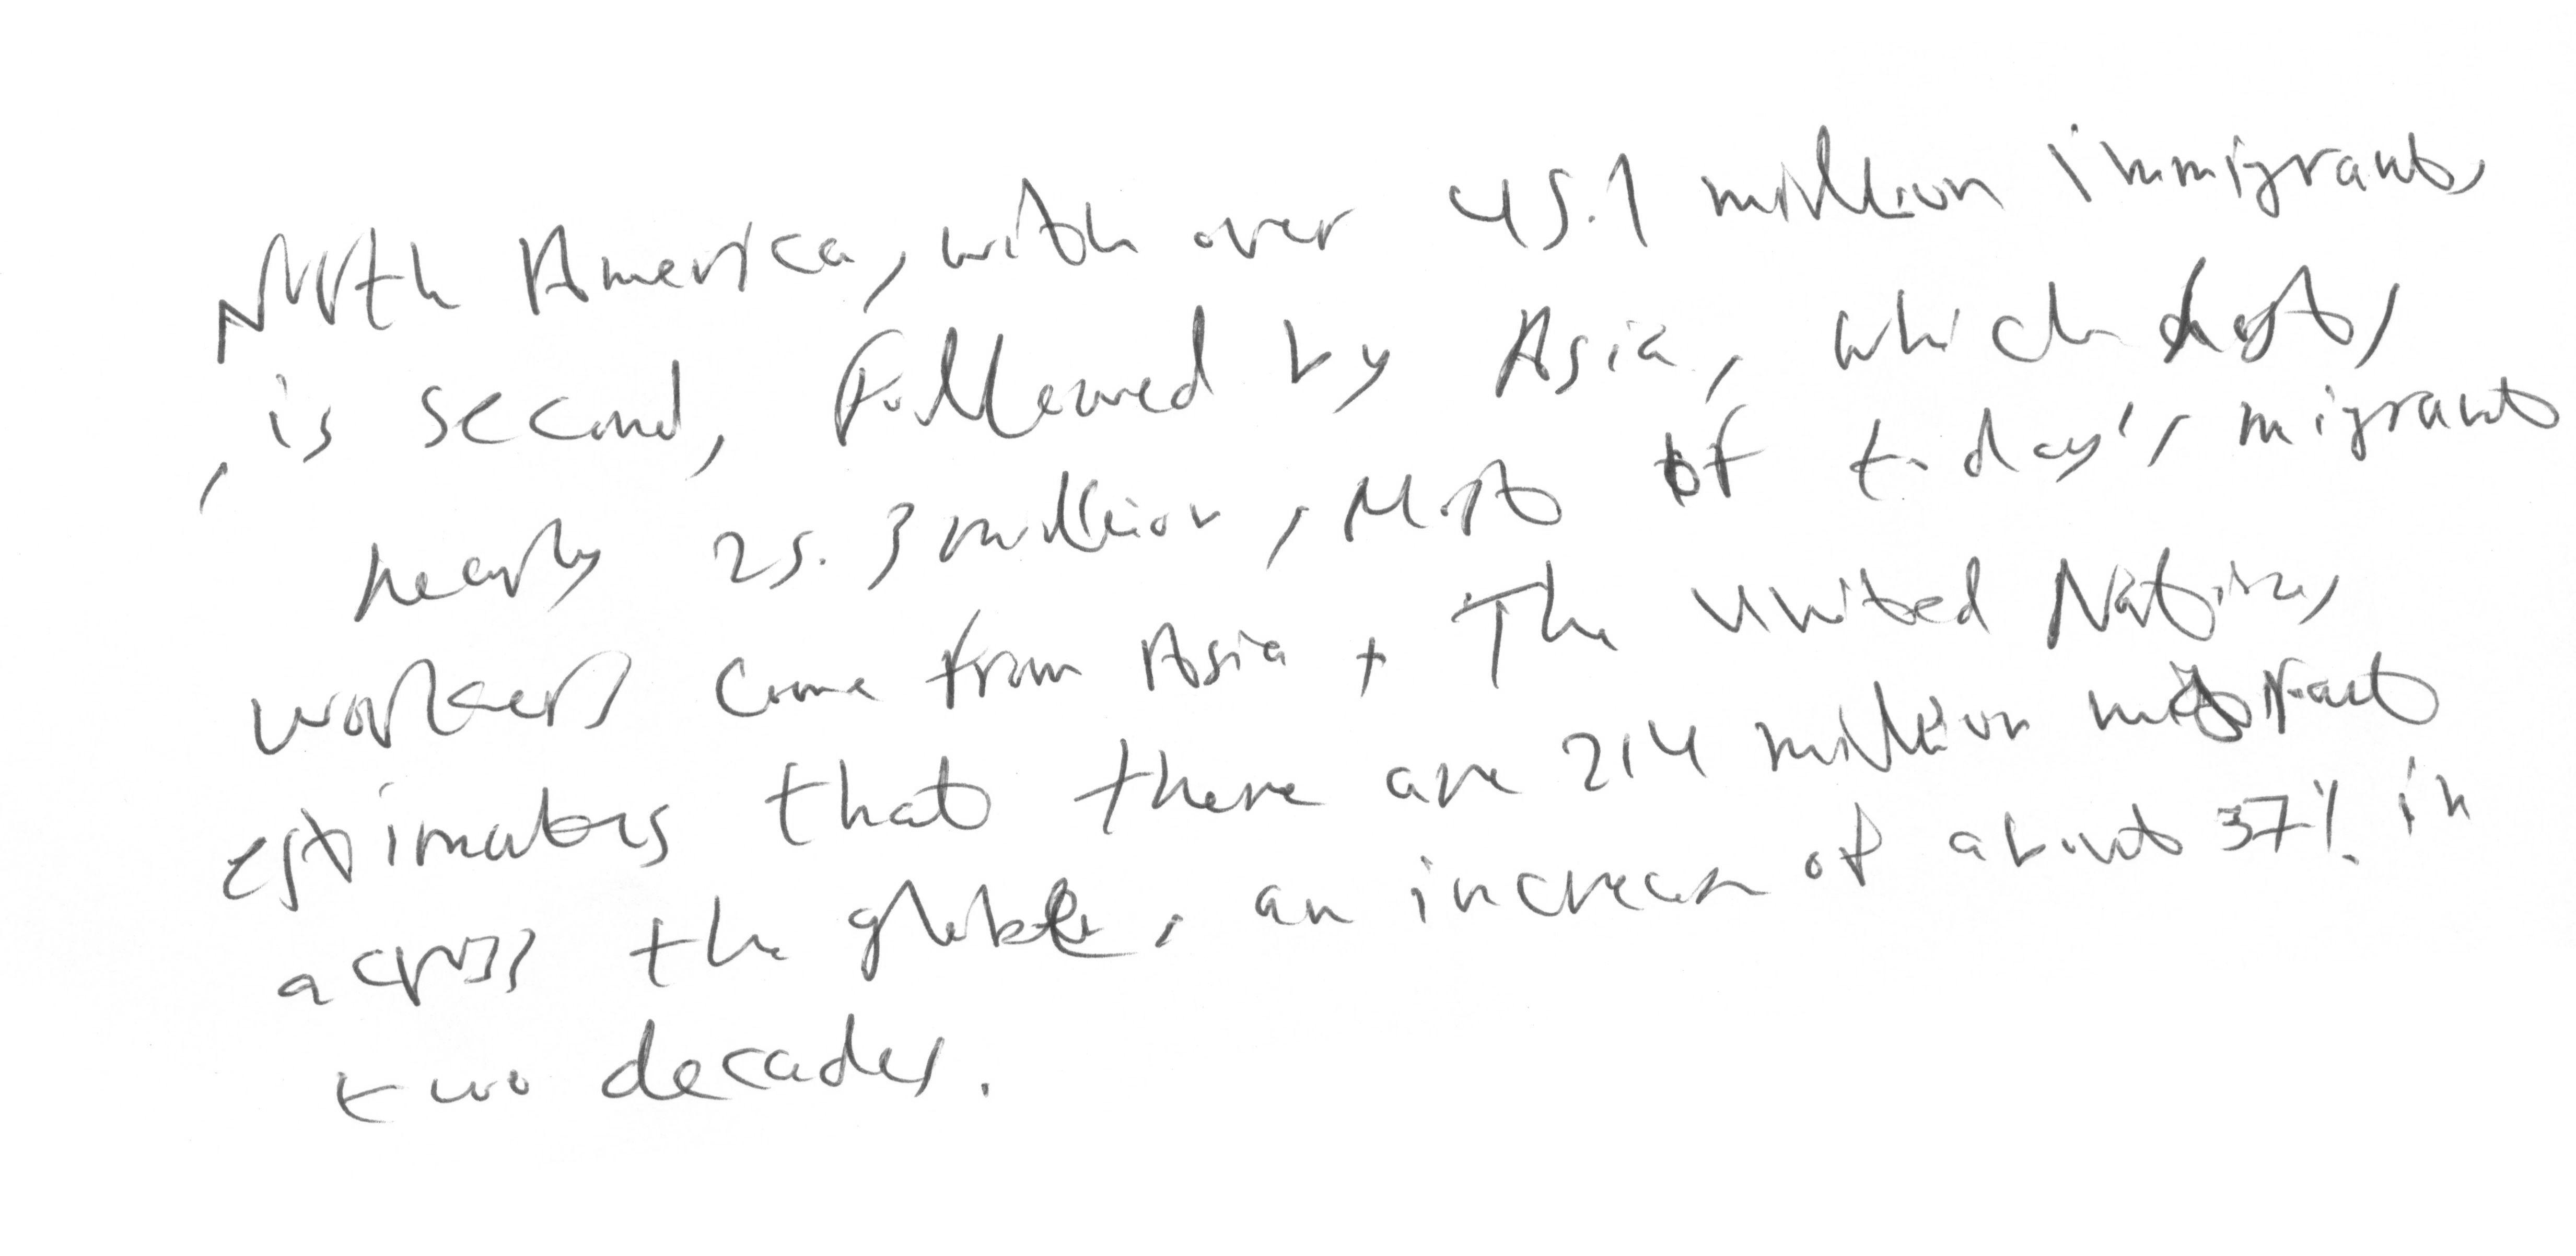 North America, with over 45.1 million immigrants
, is second, followed by Asia, which hosts
nearly 25.3 million, Most of today's migrant
workers come from Asia + The United Nations
estimates that there are 214 million migrant
across the globe, an increase of about 37% in
two decades.